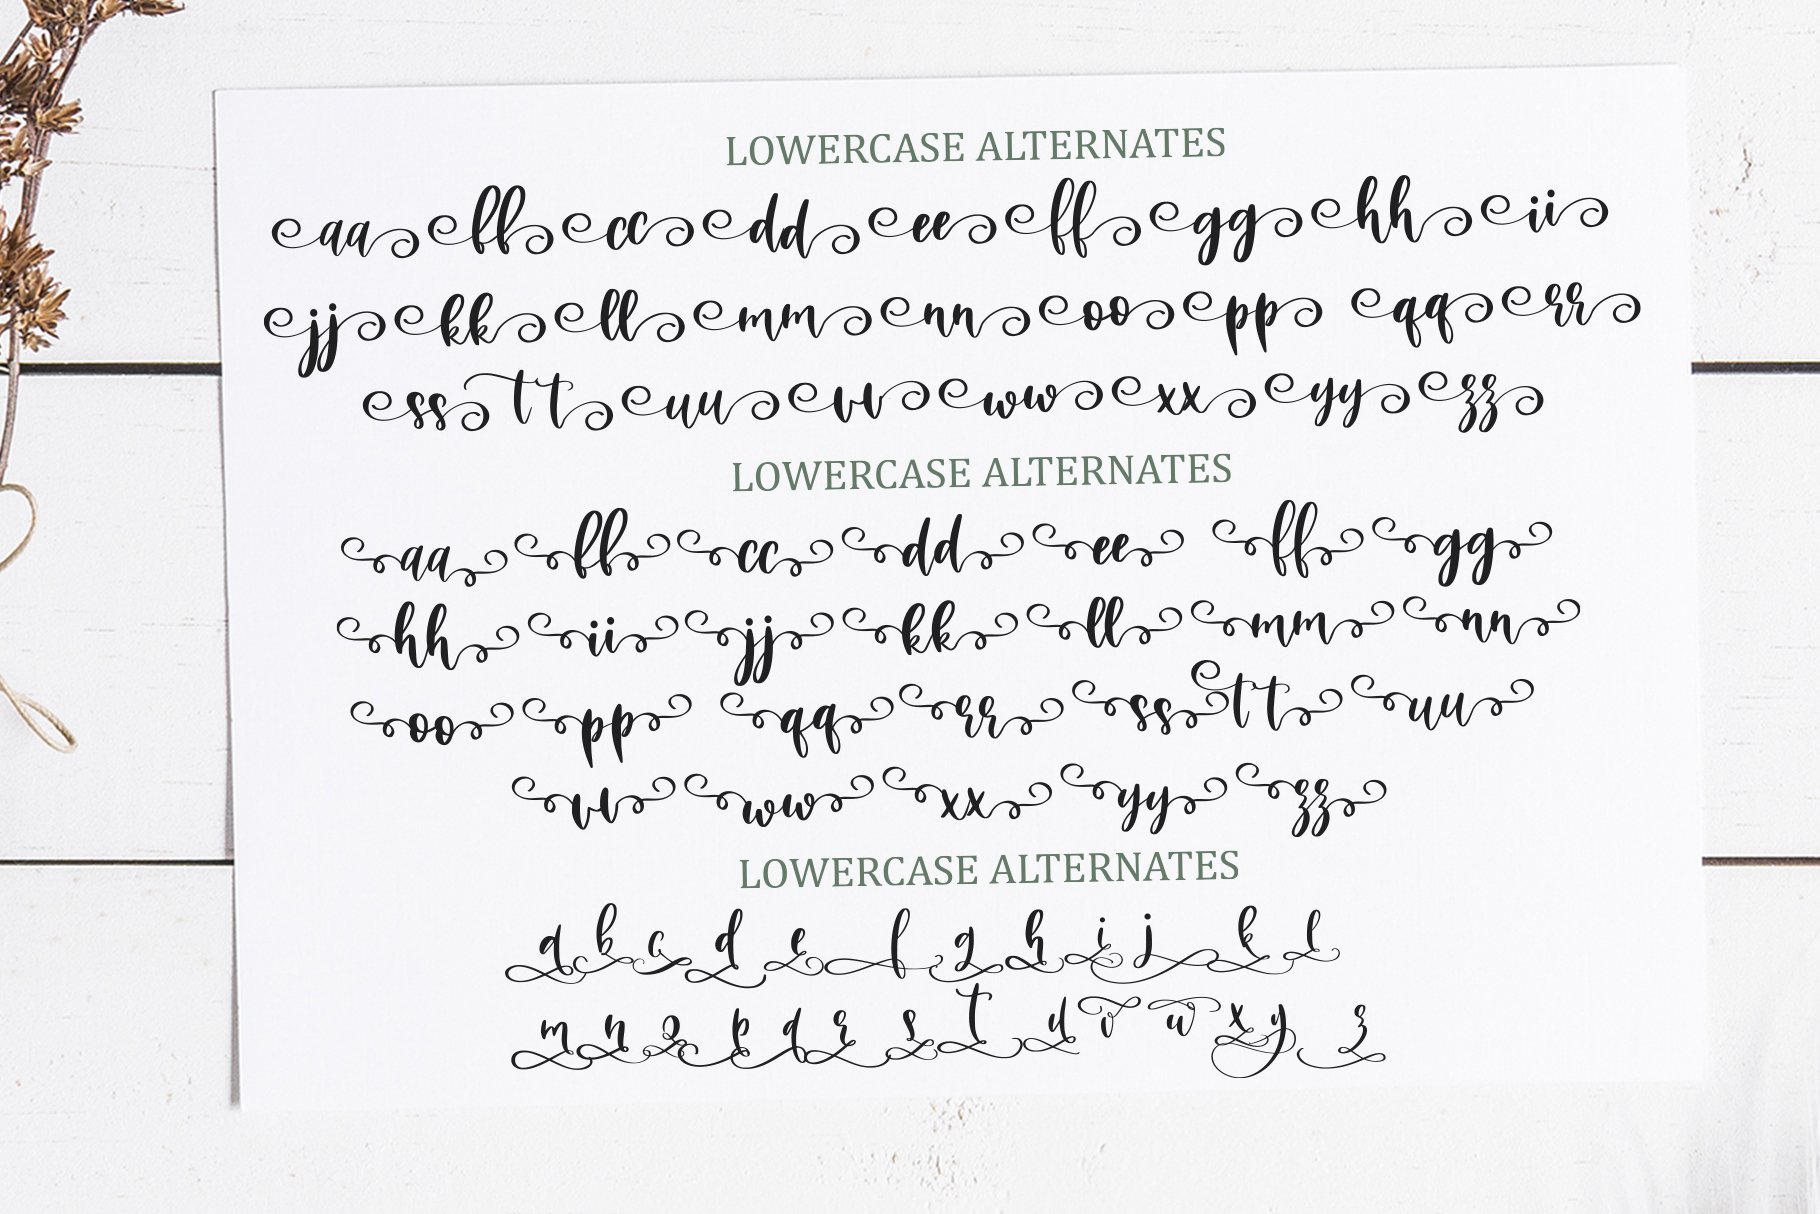 LOWERCASE ALTERNATES
aa bb cc dd ee ff gg hh ii
jj kk ll mm nn oo pp qq rr
ss tt uu vv ww xx yy zz
LOWERCASE ALTERNATES
aa bb cc dd ee ff gg
hh ii jj kk ll mm nn
oo pp qq rr ss tt uu
vv ww xx yy zz
LOWERCASE ALTERNATES
a b c d e f g h i j k l
m n o p q r s t u v w x y z